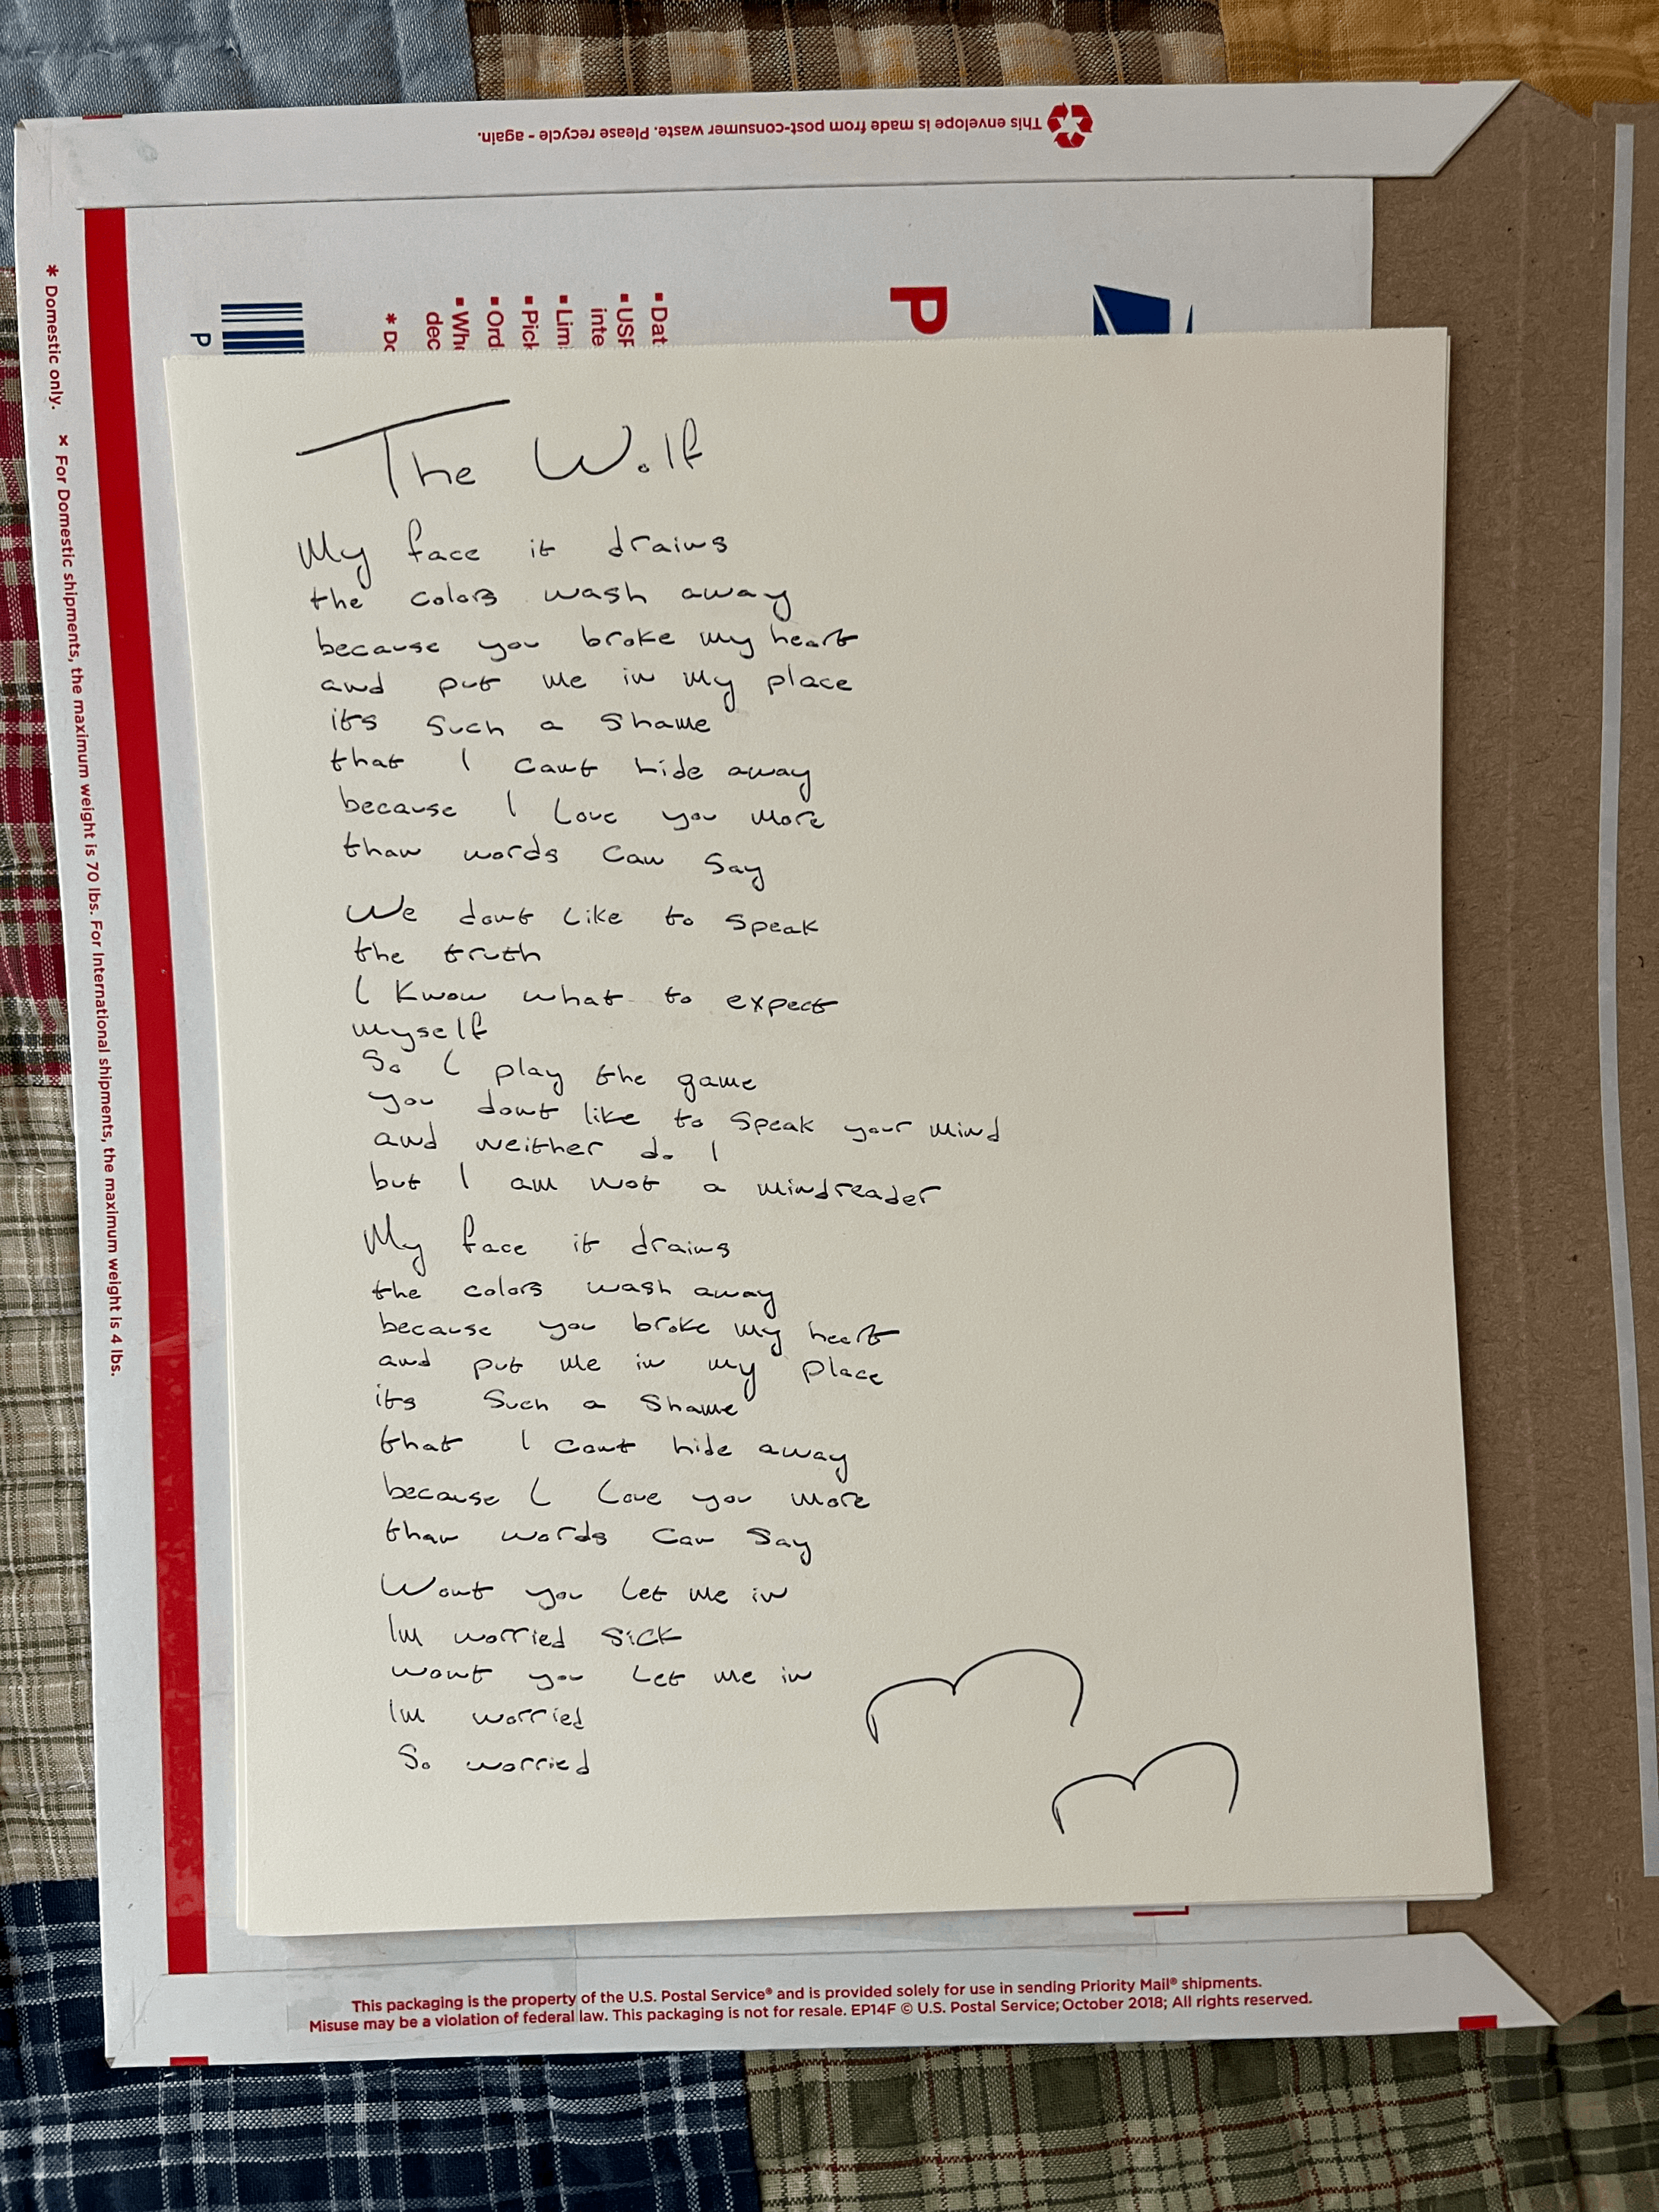 This envelope is made from post-consumer waste. Please recycle - again.
* Domestic only. × For Domestic shipments, the maximum weight is 70 lbs. For International shipments, the maximum weight is 4 lbs.
P
▪ Dat
▪ USP
inte
▪ Lim
▪ Pick
▪ Ord
▪ Whe
dec
* Do
P
The Wolf
My face it drains
the colors wash away
because you broke my heart
and put me in my place
its such a shame
that I cant hide away
because I love you more
than words can say
We dont like to speak
the truth
I know what to expect
myself
So I play the game
you dont like to speak your mind
and neither do I
but I am not a mindreader
My face it drains
the colors wash away
because you broke my heart
and put me in my place
its such a shame
that I cant hide away
because I love you more
than words can say
Wont you let me in
Im worried sick
wont you let me in
Im worried
So worried
This packaging is the property of the U.S. Postal Service® and is provided solely for use in sending Priority Mail® shipments.
Misuse may be a violation of federal law. This packaging is not for resale. EP14F © U.S. Postal Service; October 2018; All rights reserved.